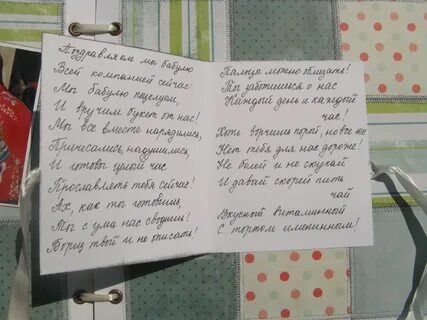 Поздравляем мы бабулю
Всей компанией сейчас
Мы бабулю поцелуем,
И вручим букет от нас!
Мы все вместе нарядились,
Причесались, надушились,
И готовы целый час
Прославлять тебя сейчас!
Ах, как ты готовишь,
Мы с ума нас сводишь!
Борщ твой и не описать!
Пальцы можно облизать!
Ты заботишься о нас
Каждый день и каждый
час!
Хоть ворчишь порой, но все же
Нет тебя для нас дороже!
Не болей и не скучай
И давай скорей пить
чай
Вкусный витаминный
С тортом именинным!